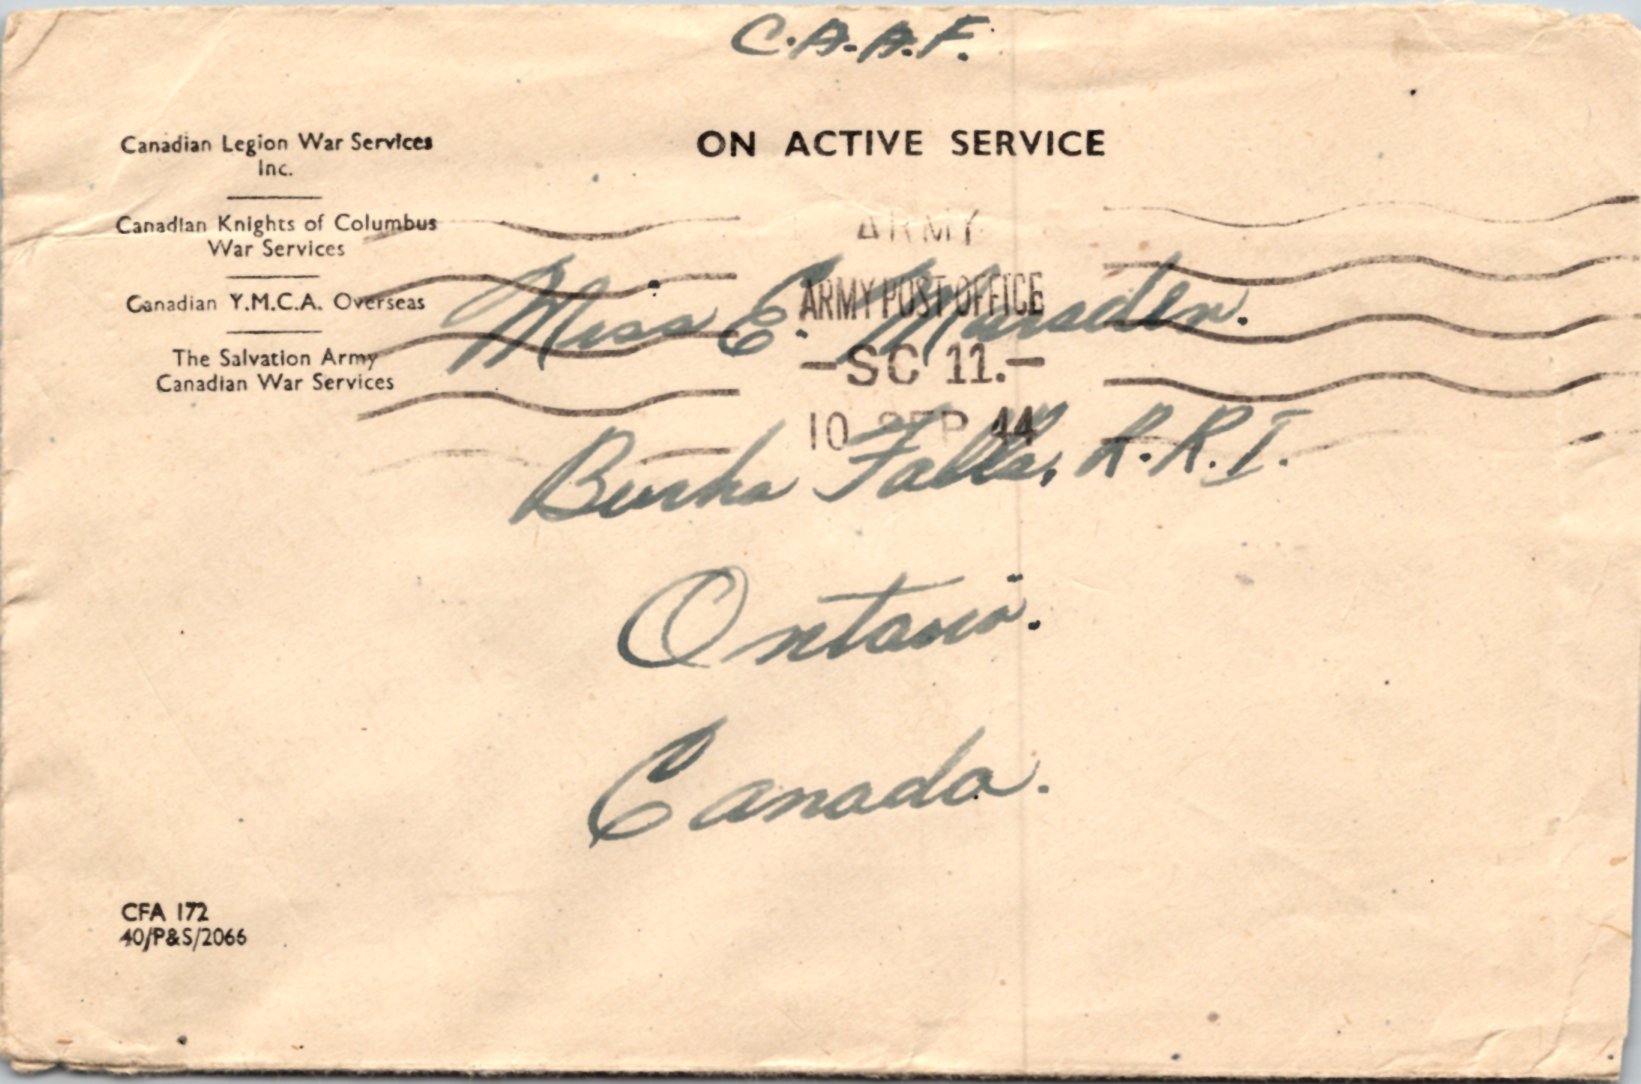 C.A.A.F.
ON ACTIVE SERVICE
Canadian Legion War Services
Inc.
Canadian Knights of Columbus
War Services
Canadian Y.M.C.A. Overseas
The Salvation Army
Canadian War Services
ARMY
ARMY POST OFFICE
-SC 11.-
10 SEP 44
Miss E. Marsden.
Burks Falls, R.R.I.
Ontario.
Canada.
CFA 172
40/P&S/2066